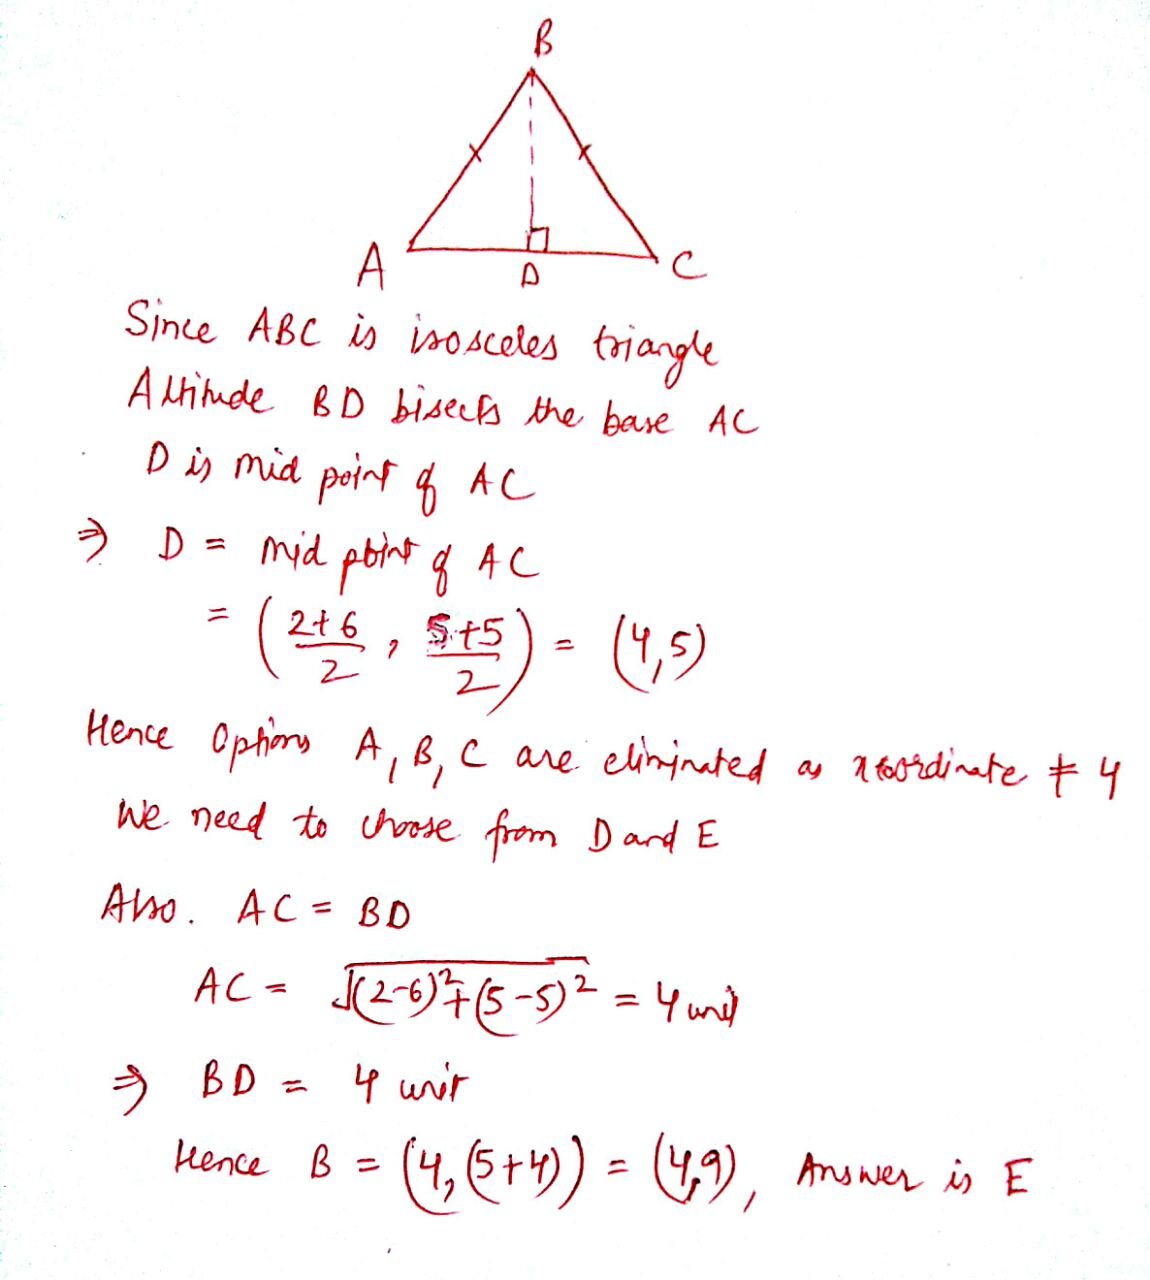 B
A
D
C
Since ABC is isosceles triangle
Altitude BD bisects the base AC
D is mid point of AC
⇒ D = mid point of AC
= (2+6/2, 5+5/2) = (4,5)
Hence Options A, B, C are eliminated as x coordinate ≠ 4
We need to choose from D and E
Also. AC = BD
AC = √(2-6)²+(5-5)² = 4 unit
⇒ BD = 4 unit
Hence B = (4,(5+4)) = (4,9), Answer is E